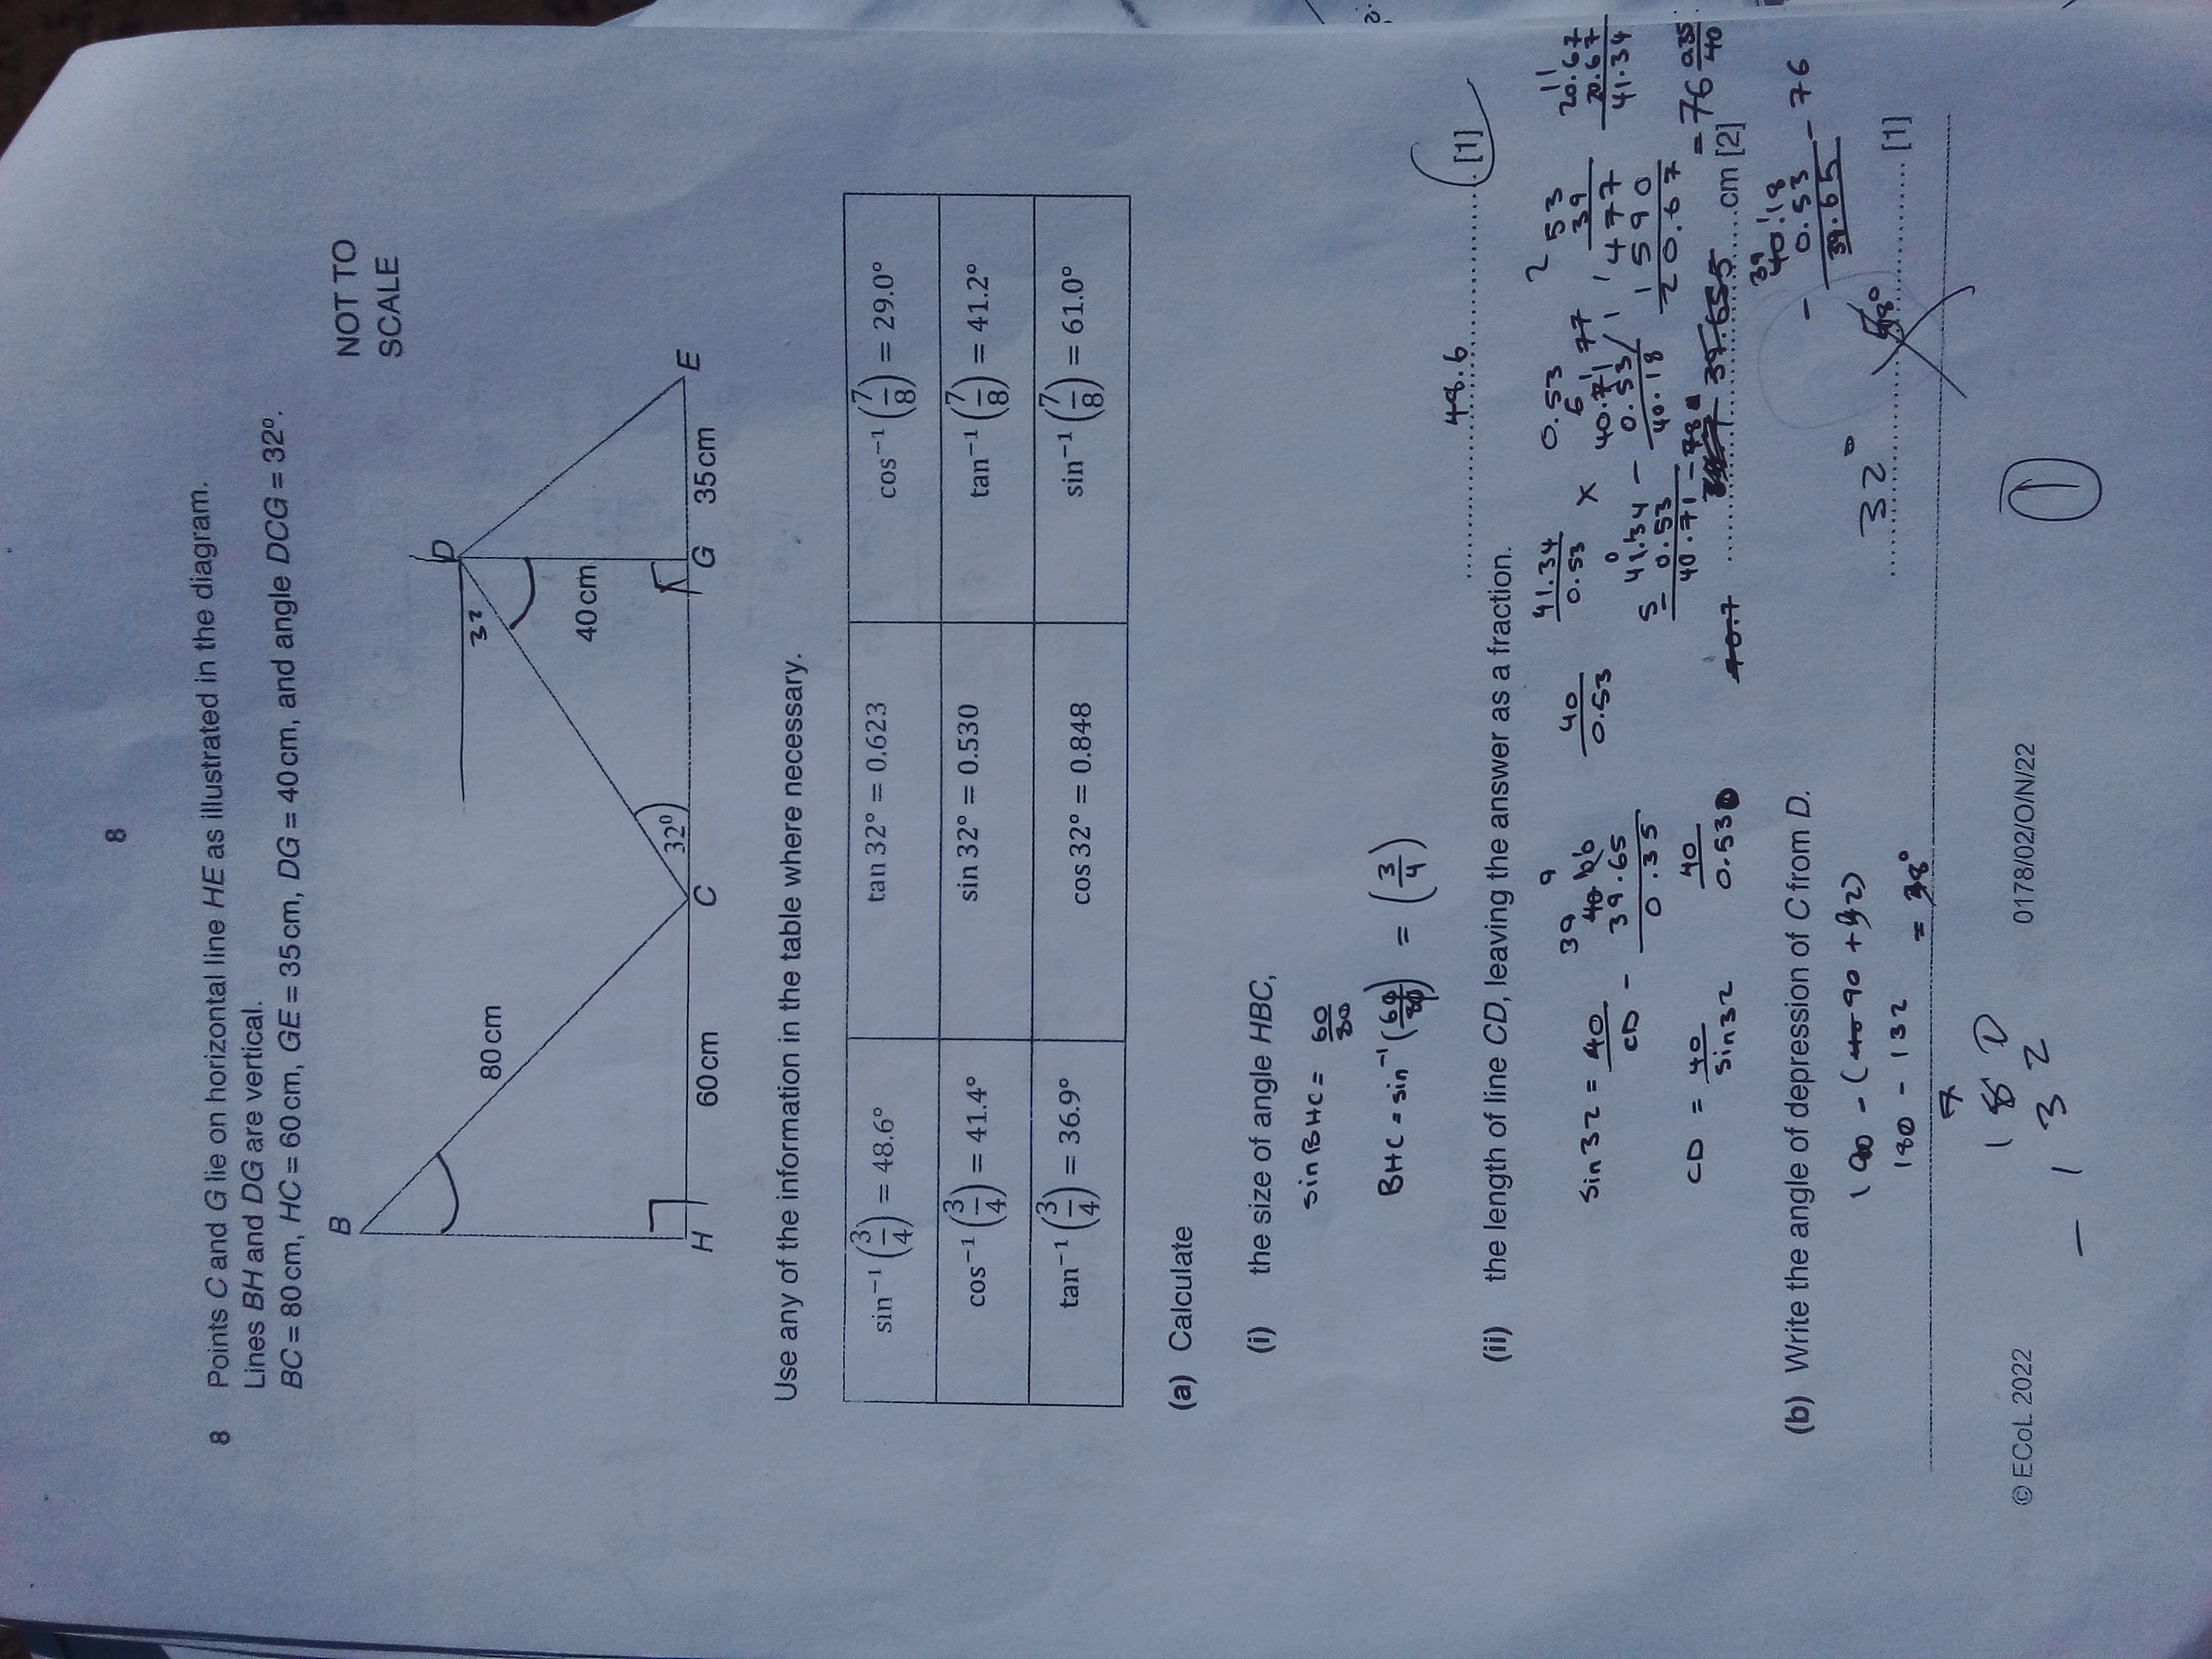 8
8 Points C and G lie on horizontal line HE as illustrated in the diagram.
Lines BH and DG are vertical.
BC = 80 cm, HC = 60 cm, GE = 35 cm, DG = 40 cm, and angle DCG = 32°.
B
NOT TO
SCALE
D
80 cm
32
40 cm
32°
H
60 cm
C
G
35 cm
E
Use any of the information in the table where necessary.
sin⁻¹ (3/4) = 48.6° tan 32° = 0.623 cos⁻¹ (7/8) = 29.0°
cos⁻¹ (3/4) = 41.4° sin 32° = 0.530 tan⁻¹ (7/8) = 41.2°
tan⁻¹ (3/4) = 36.9° cos 32° = 0.848 sin⁻¹ (7/8) = 61.0°
(a) Calculate
(i) the size of angle HBC,
sin BHC = 60/80
BHC = sin⁻¹ (60/80) = (3/4)
48.6 [1]
(ii) the length of line CD, leaving the answer as a fraction.
sin 32 = 40/CD
39.65
0.35
40/0.53
41.34/0.53 ×
0.53
41.34
0.53
40.71
0.53
40.18
53
39
477
1590
20.67
20.67
20.67
41.34
CD = 40/sin32
40/0.530
= 76 0.35/40
40.7 39.655 cm [2]
(b) Write the angle of depression of C from D.
40.18
- 0.53 - 76
39.65
180 - 132
32° [1]
180
- 132
© ECoL 2022
0178/02/O/N/22
1